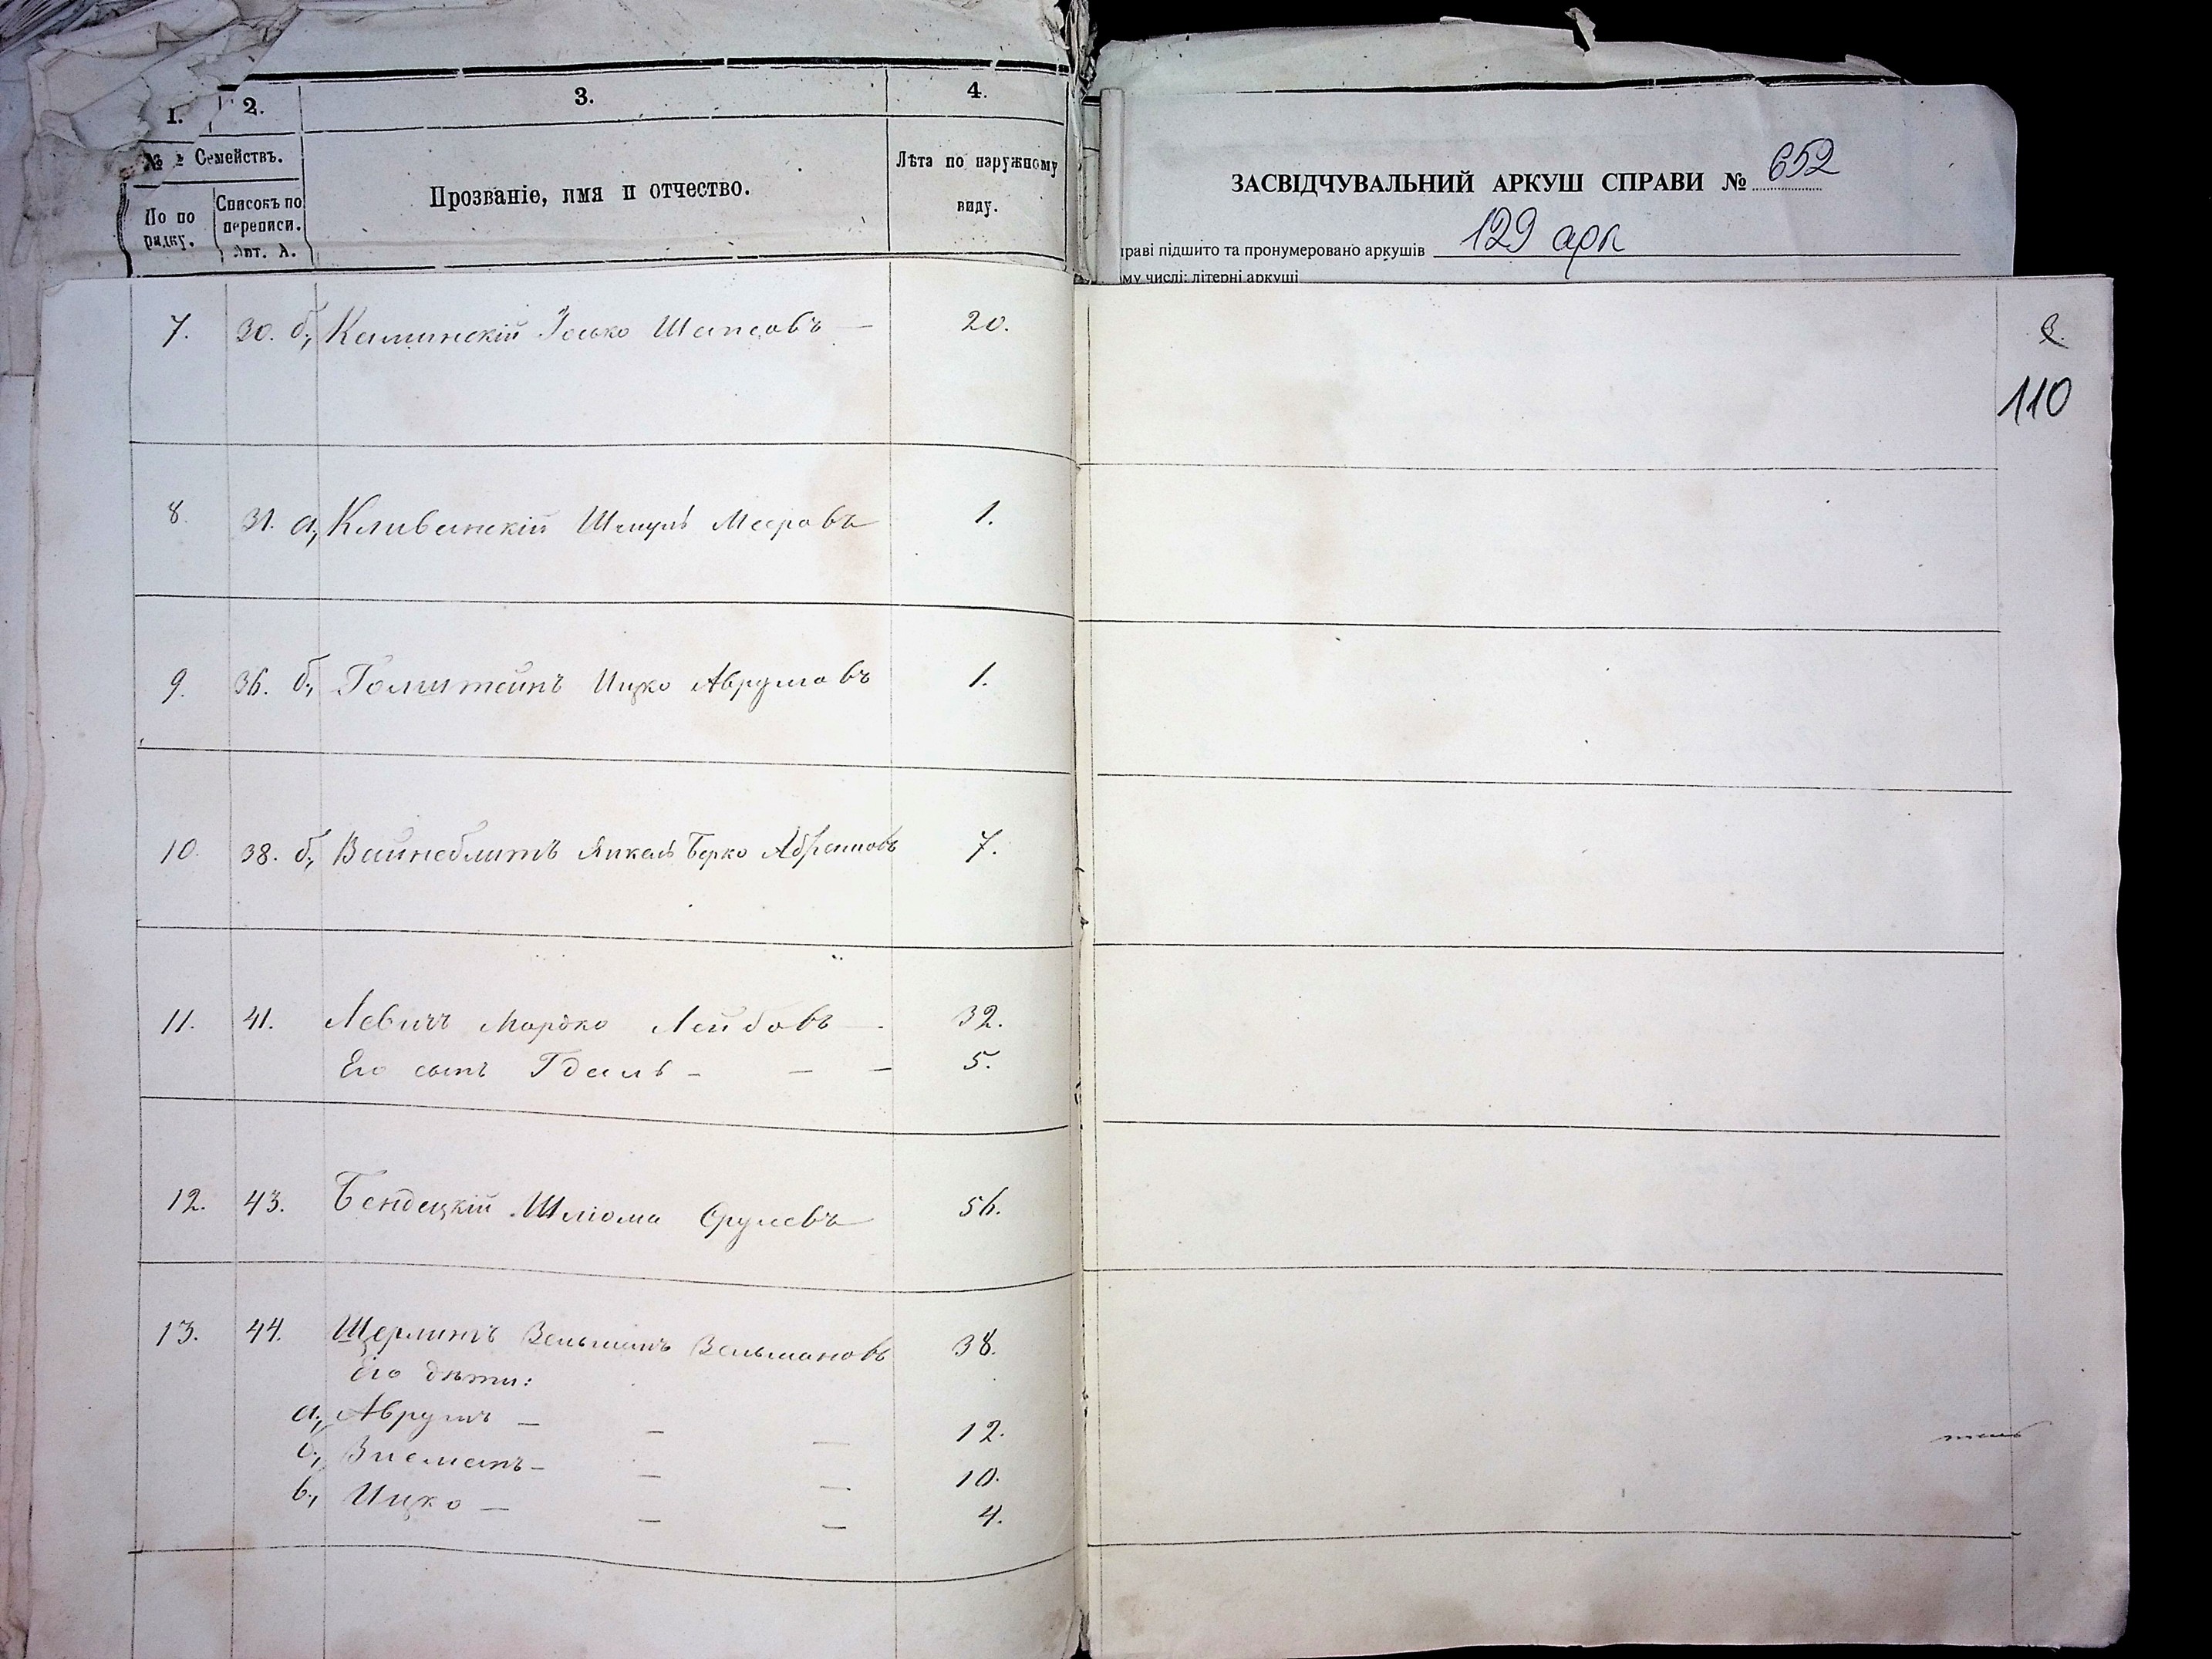 1.
2.
3.
4.
№ Семействъ.
По по рядку.
Списокъ по переписи. Лит. А.
Прозваніе, имя и отчество.
Лѣта по наружному
виду.
ЗАСВІДЧУВАЛЬНИЙ АРКУШ СПРАВИ № 652
праві підшито та пронумеровано аркушів 129 арк
ому числі: літерні аркуші
2.
110
7. 30. б, Каминскій Іосько Шапсовъ — 20.
8. 31. а, Кливанскій Шмуль Мееровъ 1.
9. 36. б, Голштейнъ Ицко Аврумовъ 1.
10. 38. б, Вайнеблитъ Янкель Берко Абрамовъ 7.
11. 41. Левичъ Мордко Лейбовъ — 32.
Его сынъ Гдаль — — — 5.
12. 43. Бендецкій Шліома Срулевъ 56.
13. 44. Щерлинъ Вельманъ Вельмановъ 38.
Его дѣти:
а, Аврумъ — — — 12.
б, Зисманъ — — — 10.
в, Ицко — — — 4.